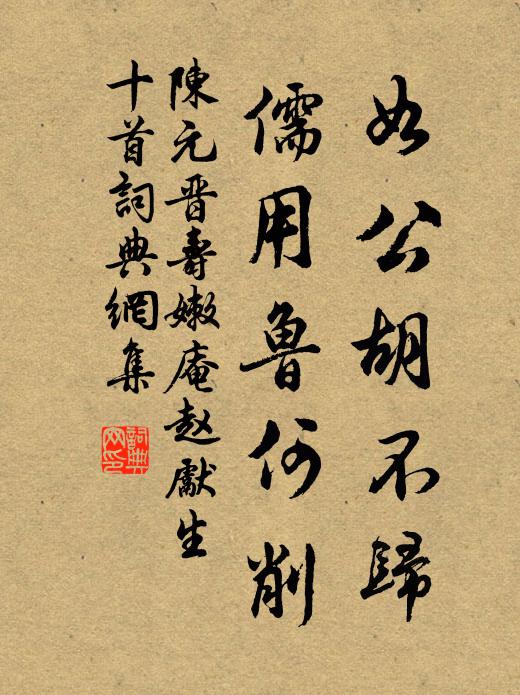 如公胡不歸
儒用魯何削
陳元晋壽嫩庵赵獻生
十首詞典網集
詞典網印